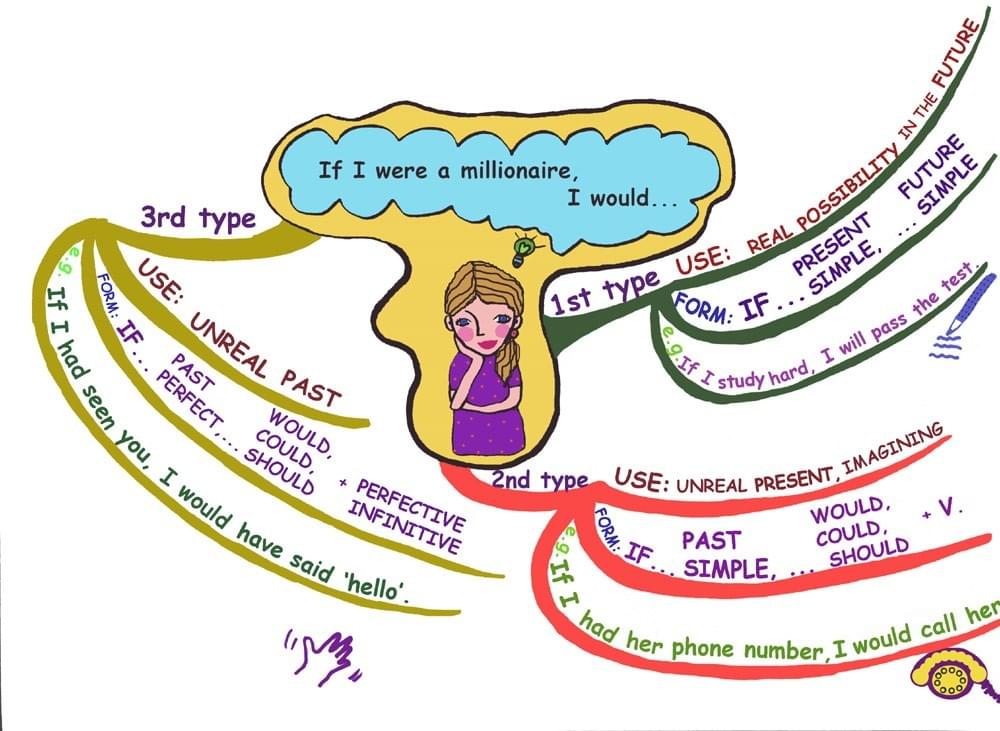 If I were a millionaire,
I would...
1st type
USE: REAL POSSIBILITY IN THE FUTURE
FORM: IF ... PRESENT SIMPLE, ... FUTURE SIMPLE
e.g. If I study hard, I will pass the test.
2nd type
USE: UNREAL PRESENT, IMAGINING
FORM: IF... PAST SIMPLE, ... WOULD, COULD, SHOULD + V.
e.g. If I had her phone number, I would call her
3rd type
USE: UNREAL PAST
FORM: IF... PAST PERFECT,... WOULD, COULD, SHOULD + PERFECTIVE INFINITIVE
e.g. If I had seen you, I would have said 'hello'.